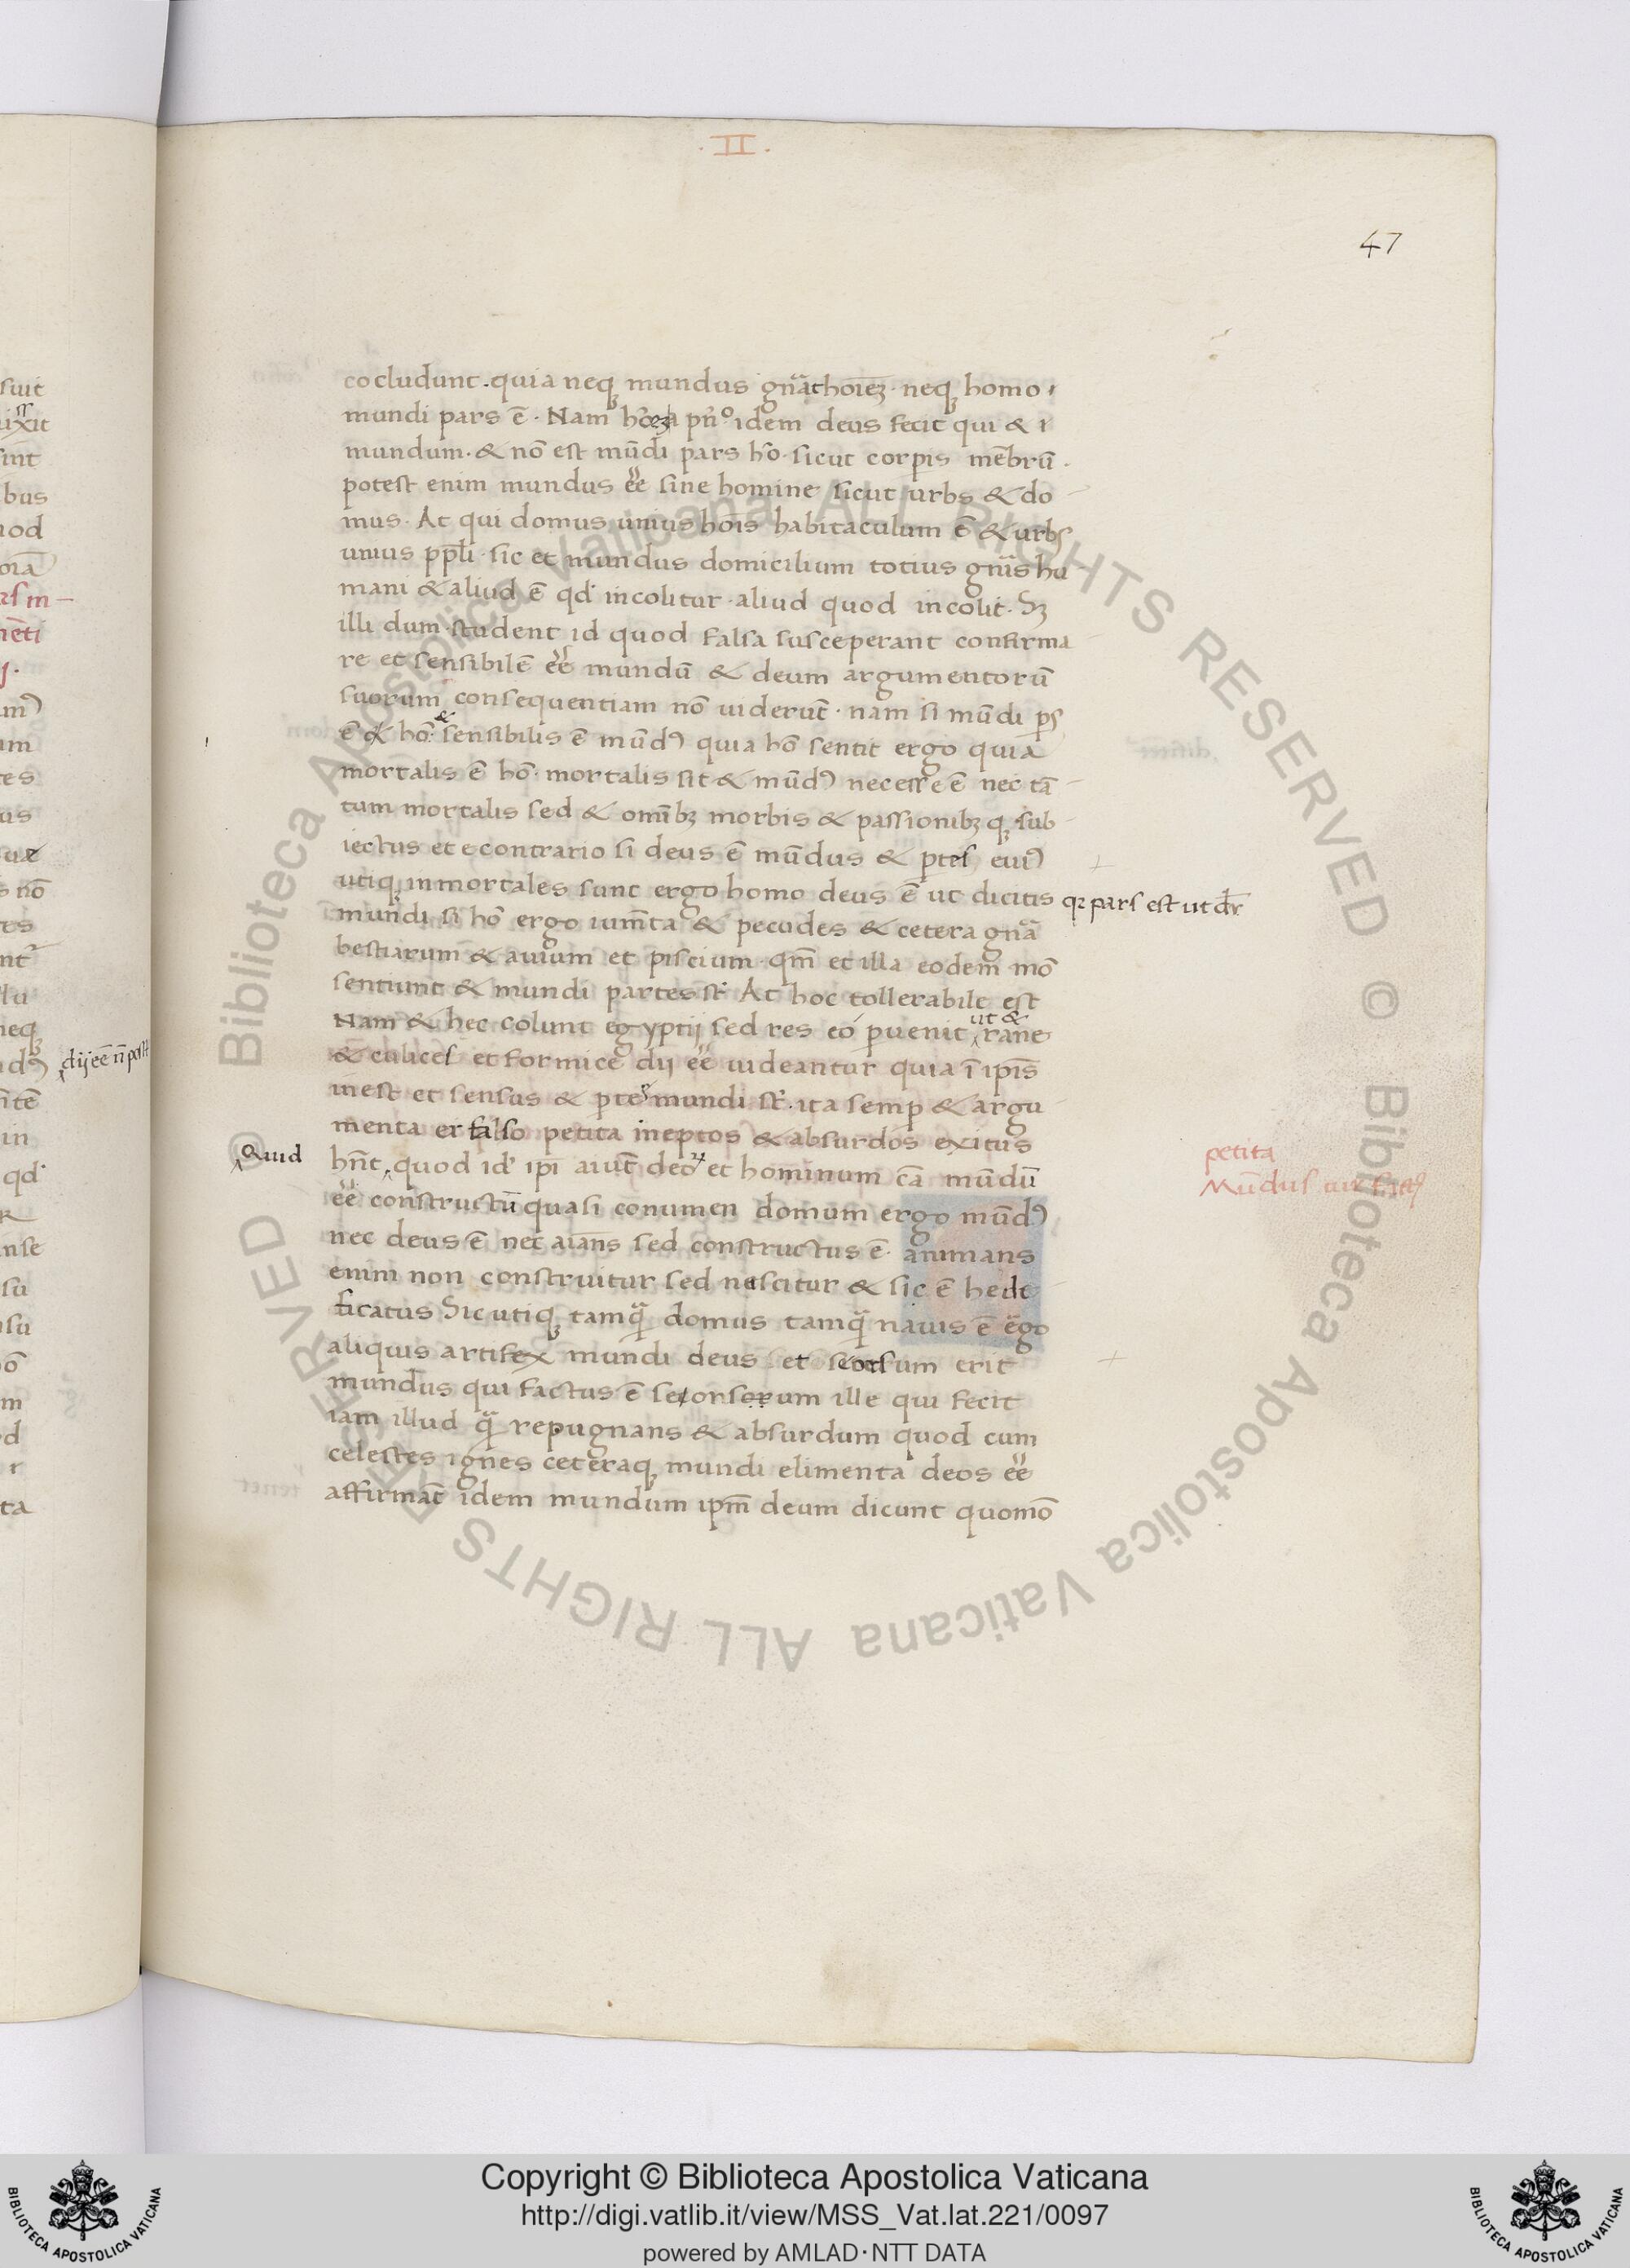 ·II·
47
cocludunt. quia neq̨ mundus gnãt hoıẽꝫ · neq̨ homo
mundi pars ē · Nam hõıeꝫ a pñº idem deus fecit qui & ı
mundum · & nō est mūdi pars hº · sicut corꝑis mēbrū ·
potest enim mundus ēē sine homine sicut urbs & do
mus · At qui domus unius hoı̄s habitaculum ē & urbs
unius pp̄li · sic et mundus domicilium totius gnı̄s hu
mani & aliud ē qđ incolitur · aliud quod incolit · Sꝫ
illi dum student id quod falsa susceperant confirma
re et sensibilē ēē mundū & deum argumentorū
suorum consequentiam nō uiderūt · nam si mūdi ꝑs
ē hō · & sensibilis ē mūdꝰ quia hō sentit ergo quia
mortalis ē hō · mortalis sit & mūdꝰ necesse ē nec tā
tum mortalis sed & omı̄bꝫ morbis & passionibꝫ q̨ sub
iectus et e contrario si deus ē mūdus & ꝑtes euiꝰ
utiq̨ inmortales sunt ergo homo deus ē ut dicitis qꝛ pars est ut dr̄
mundi si hō ergo ium̄ta & pecudes & cetera gnã
bestiarum & auium et piscium · qm̄ et illa eodem mō
sentiunt & mundi partes st̄ · At hoc tollerabile est
Nam & hec colunt egyptij sed res eó ꝑuenit ut & rane
& culices et formice dij ēē uideantur quia ı̄ ip̄ıs
inest et sensus & ꝑtes mundi st̄ · ita semꝑ & argu
menta er falso petita ineptos & absurdos exitus
Quid
hn̄t quod id' ip̄ı aiūt deoꝝ et hominum cā mūdū
ēē constructū quasi conumen domum ergo mūdꝰ
nec deus ē nec aı̄ans sed constructus ē · animans
enim non construitur sed nascitur & sic ē hedi
ficatus Sic utiq̨ tamq̃ domus tamq̃ nauis ē ergo
aliquis artifex mundi deus et seorsum erit
mundus qui factus ē seorsum ille qui fecit
iam illud q̃ repugnans & absurdum quod cum
celestes ignes ceteraq̨ mundi elimenta deos ēē
affirmāt idem mundum ip̄m deum dicunt quomō
petita
Mūdus
dij ēē n̄ post
© Biblioteca Apostolica Vaticana ALL RIGHTS RESERVED © Biblioteca Apostolica Vaticana ALL RIGHTS RESERVED
Copyright © Biblioteca Apostolica Vaticana
http://digi.vatlib.it/view/MSS_Vat.lat.221/0097
powered by AMLAD·NTT DATA
BIBLIOTECA APOSTOLICA VATICANA
BIBLIOTECA APOSTOLICA VATICANA